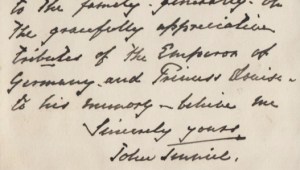 to the family - generally - on
the gracefully appreciative
tributes of the Emperor of
Germany - and Princess Louise -
to his memory - believe me
Sincerely yours
John Tenniel.